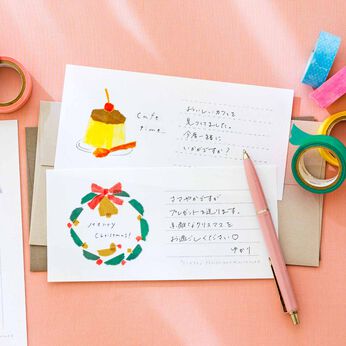 cafe
time
おいしいカフェを
見つけました。
今度一緒に
いかがですか?
Merry
Christmas!
ささやかですが
プレゼントを送ります。
素敵なクリスマスを
お過ごしください♡
ゆかり